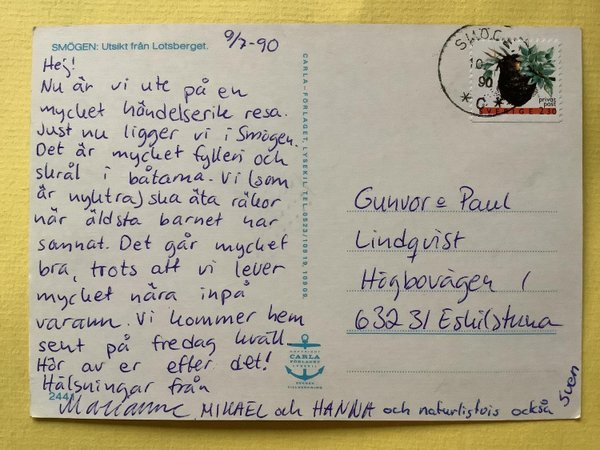 SMÖGEN: Utsikt från Lotsberget.
9/7-90
Hej!
Nu är vi ute på en
mycket händelserik resa.
Just nu ligger vi i Smögen.
Det är mycket fylleri och
skrål i båtarna. Vi (som
är nyktra) ska äta räkor
när äldsta barnet har
somnat. Det går mycket
bra, trots att vi lever
mycket nära inpå
varann. Vi kommer hem
sent på fredag kväll
Hör av er efter det!
Hälsningar från
Marianne, MIKAEL och HANNA och naturligtvis också
Sven
244
CARLA-FÖRLAGET, LYSEKIL, TEL. 0523/
COPYRIGHT
CARLA
FÖRLAGET
LYSEKIL
SVENSK
TILLVERKNING
SMÖGEN
10
90
* C *
privat
post
SVERIGE 2.30
Gunvor o Paul
Lindqvist
Högbovägen 1
632 31 Eskilstuna